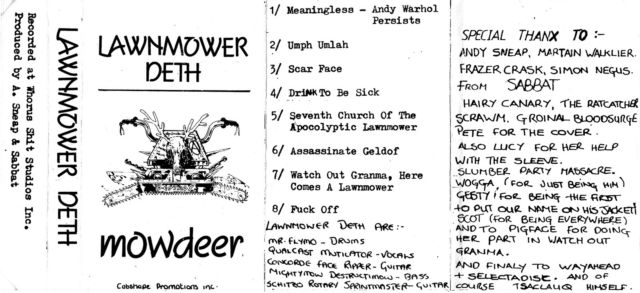 Recorded at Whorus Shit Studios Inc.
Produced by A. Sneap & Sabbat
LAWNMOWER DETH
LAWNMOWER
DETH
mowdeer
Cabshape Promotions Inc.
1/ Meaningless - Andy Warhol
Persists
2/ Umph Umlah
3/ Scar Face
4/ Drink To Be Sick
5/ Seventh Church Of The
Apocolyptic Lawnmower
6/ Assassinate Geldof
7/ Watch Out Granma, Here
Comes A Lawnmower
8/ Fuck Off
LAWNMOWER DETH ARE:-
MR. FLYMO - DRUMS
QUALCAST MUTILATOR - VOCALS
CONCORDE FACE RIPPER - GUITAR
MIGHTYMOW DESTRUCTIMOW - BASS
SCHITZO ROTARY SPRINTMASTER - GUITAR
SPECIAL THANX TO :-
ANDY SNEAP, MARTAIN WALKLIER.
FRAZER CRASK, SIMON NEGUS.
FROM SABBAT
HAIRY CANARY, THE RATCATCHER
SCRAWM. GROINAL BLOODSURGE
PETE FOR THE COVER.
ALSO LUCY FOR HER HELP
WITH THE SLEEVE.
SLUMBER PARTY MASSACRE.
WOGGA, (FOR JUST BEING HIM)
(FOR BEING THE FIRST
TO PUT OUR NAME ON HIS JACKET)
SCOT (FOR BEING EVERYWHERE)
AND TO PIGFACE FOR DOING
HER PART IN WATCH OUT
GRANMA.
AND FINALY TO WAYAHEAD
+ SELECTADISC. AND OF
COURSE TSACLAUQ HIMSELF.